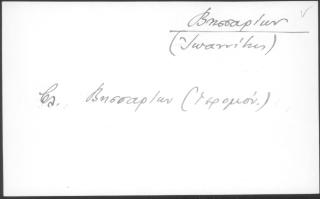 Βησσαρίων
(Ἰωαννίτης)
βλ. Βησσαρίων (Ἱερομόν.)